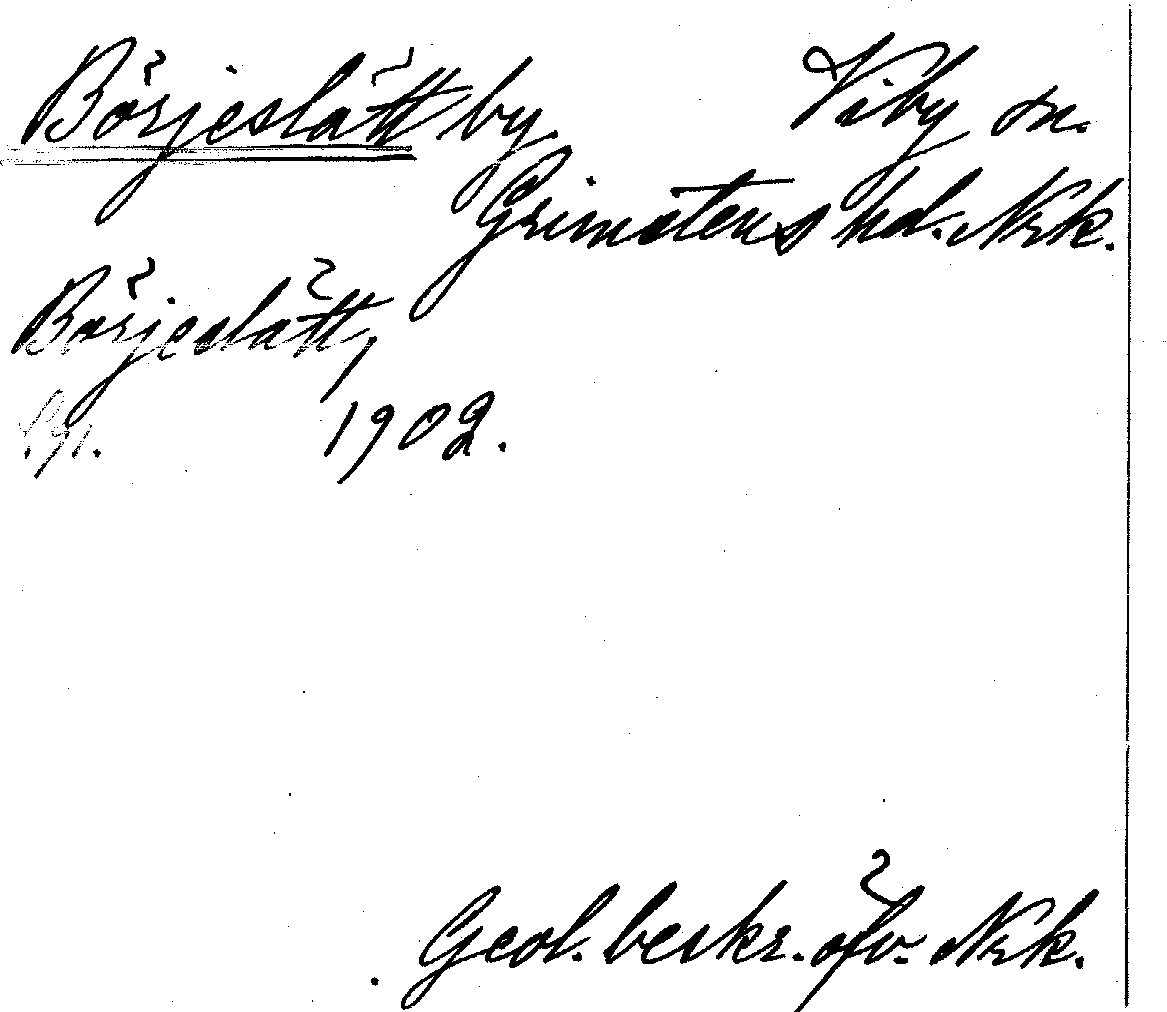 Börjeslätt by. Viby sn.
Grimstens hd. Nrk.
Börjeslätt,
1902.
Geol. beskr. öfv. Nrk.